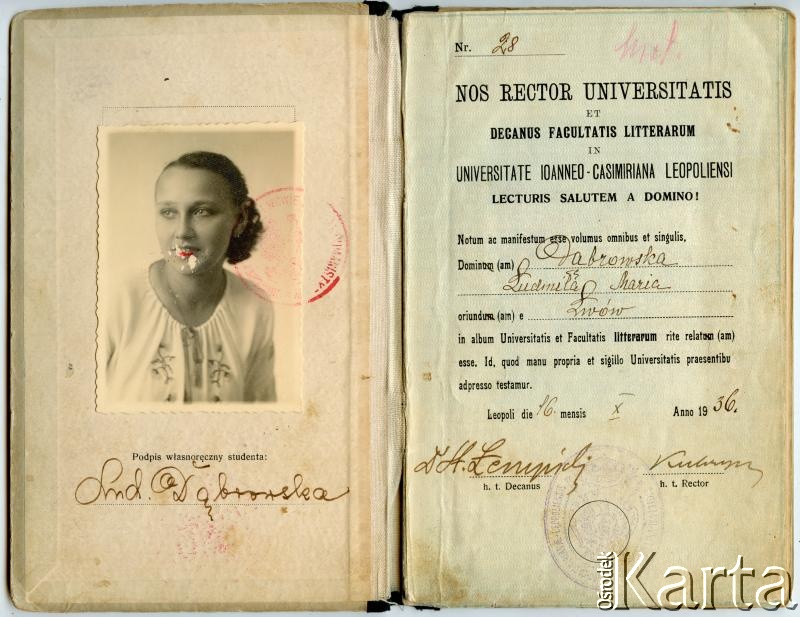 Podpis własnoręczny studenta:
Lud. Dąbrowska
Nr. 28
NOS RECTOR UNIVERSITATIS
ET
DECANUS FACULTATIS LITTERARUM
IN
UNIVERSITATE IOANNEO-CASIMIRIANA LEOPOLIENSI
LECTURIS SALUTEM A DOMINO!
Notum ac manifestum esse volumus omnibus et singulis,
Dominum (am) Dąbrowska
Ludmiła Maria
oriundum (am) e Lwów
in album Universitatis et Facultatis litterarum rite relatum (am)
esse. Id, quod manu propria et sigillo Universitatis praesentibus
adpresso testamur.
Leopoli die 16. mensis X Anno 1936.
h. t. Decanus h. t. Rector
Ośrodek Karta